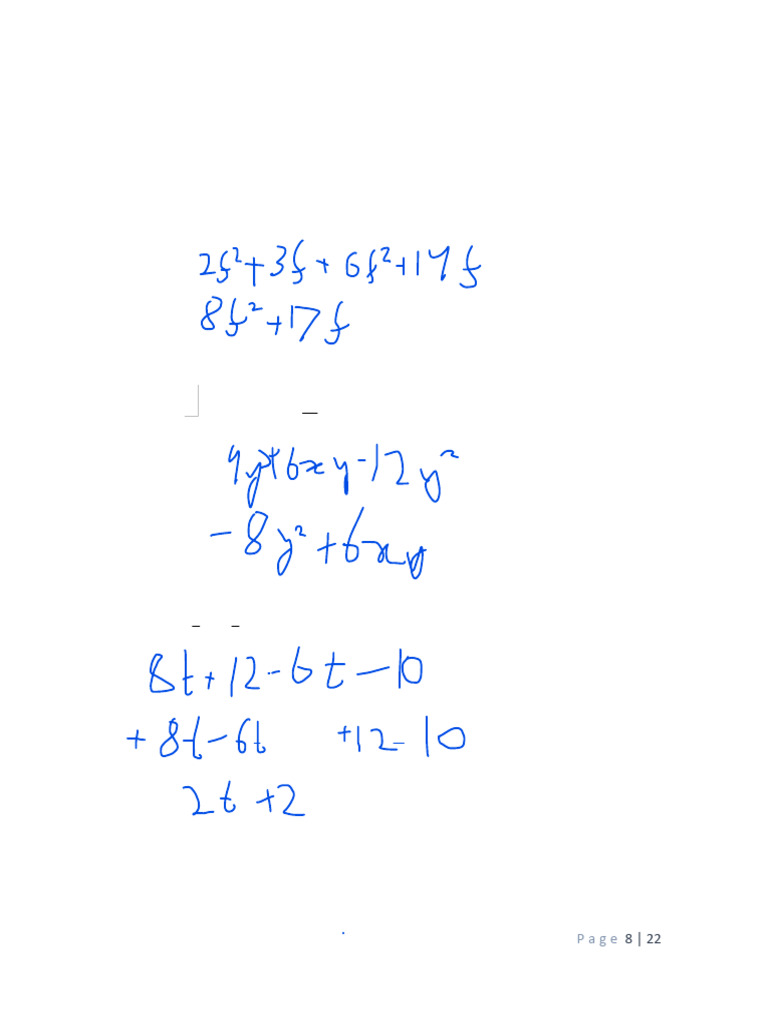 2f²+3f+6f²+14f
8f²+17f
4y²+6xy-12y²
-8y²+6xy
8t+12-6t-10
+8t-6t +12-10
2t+2
Page 8 | 22